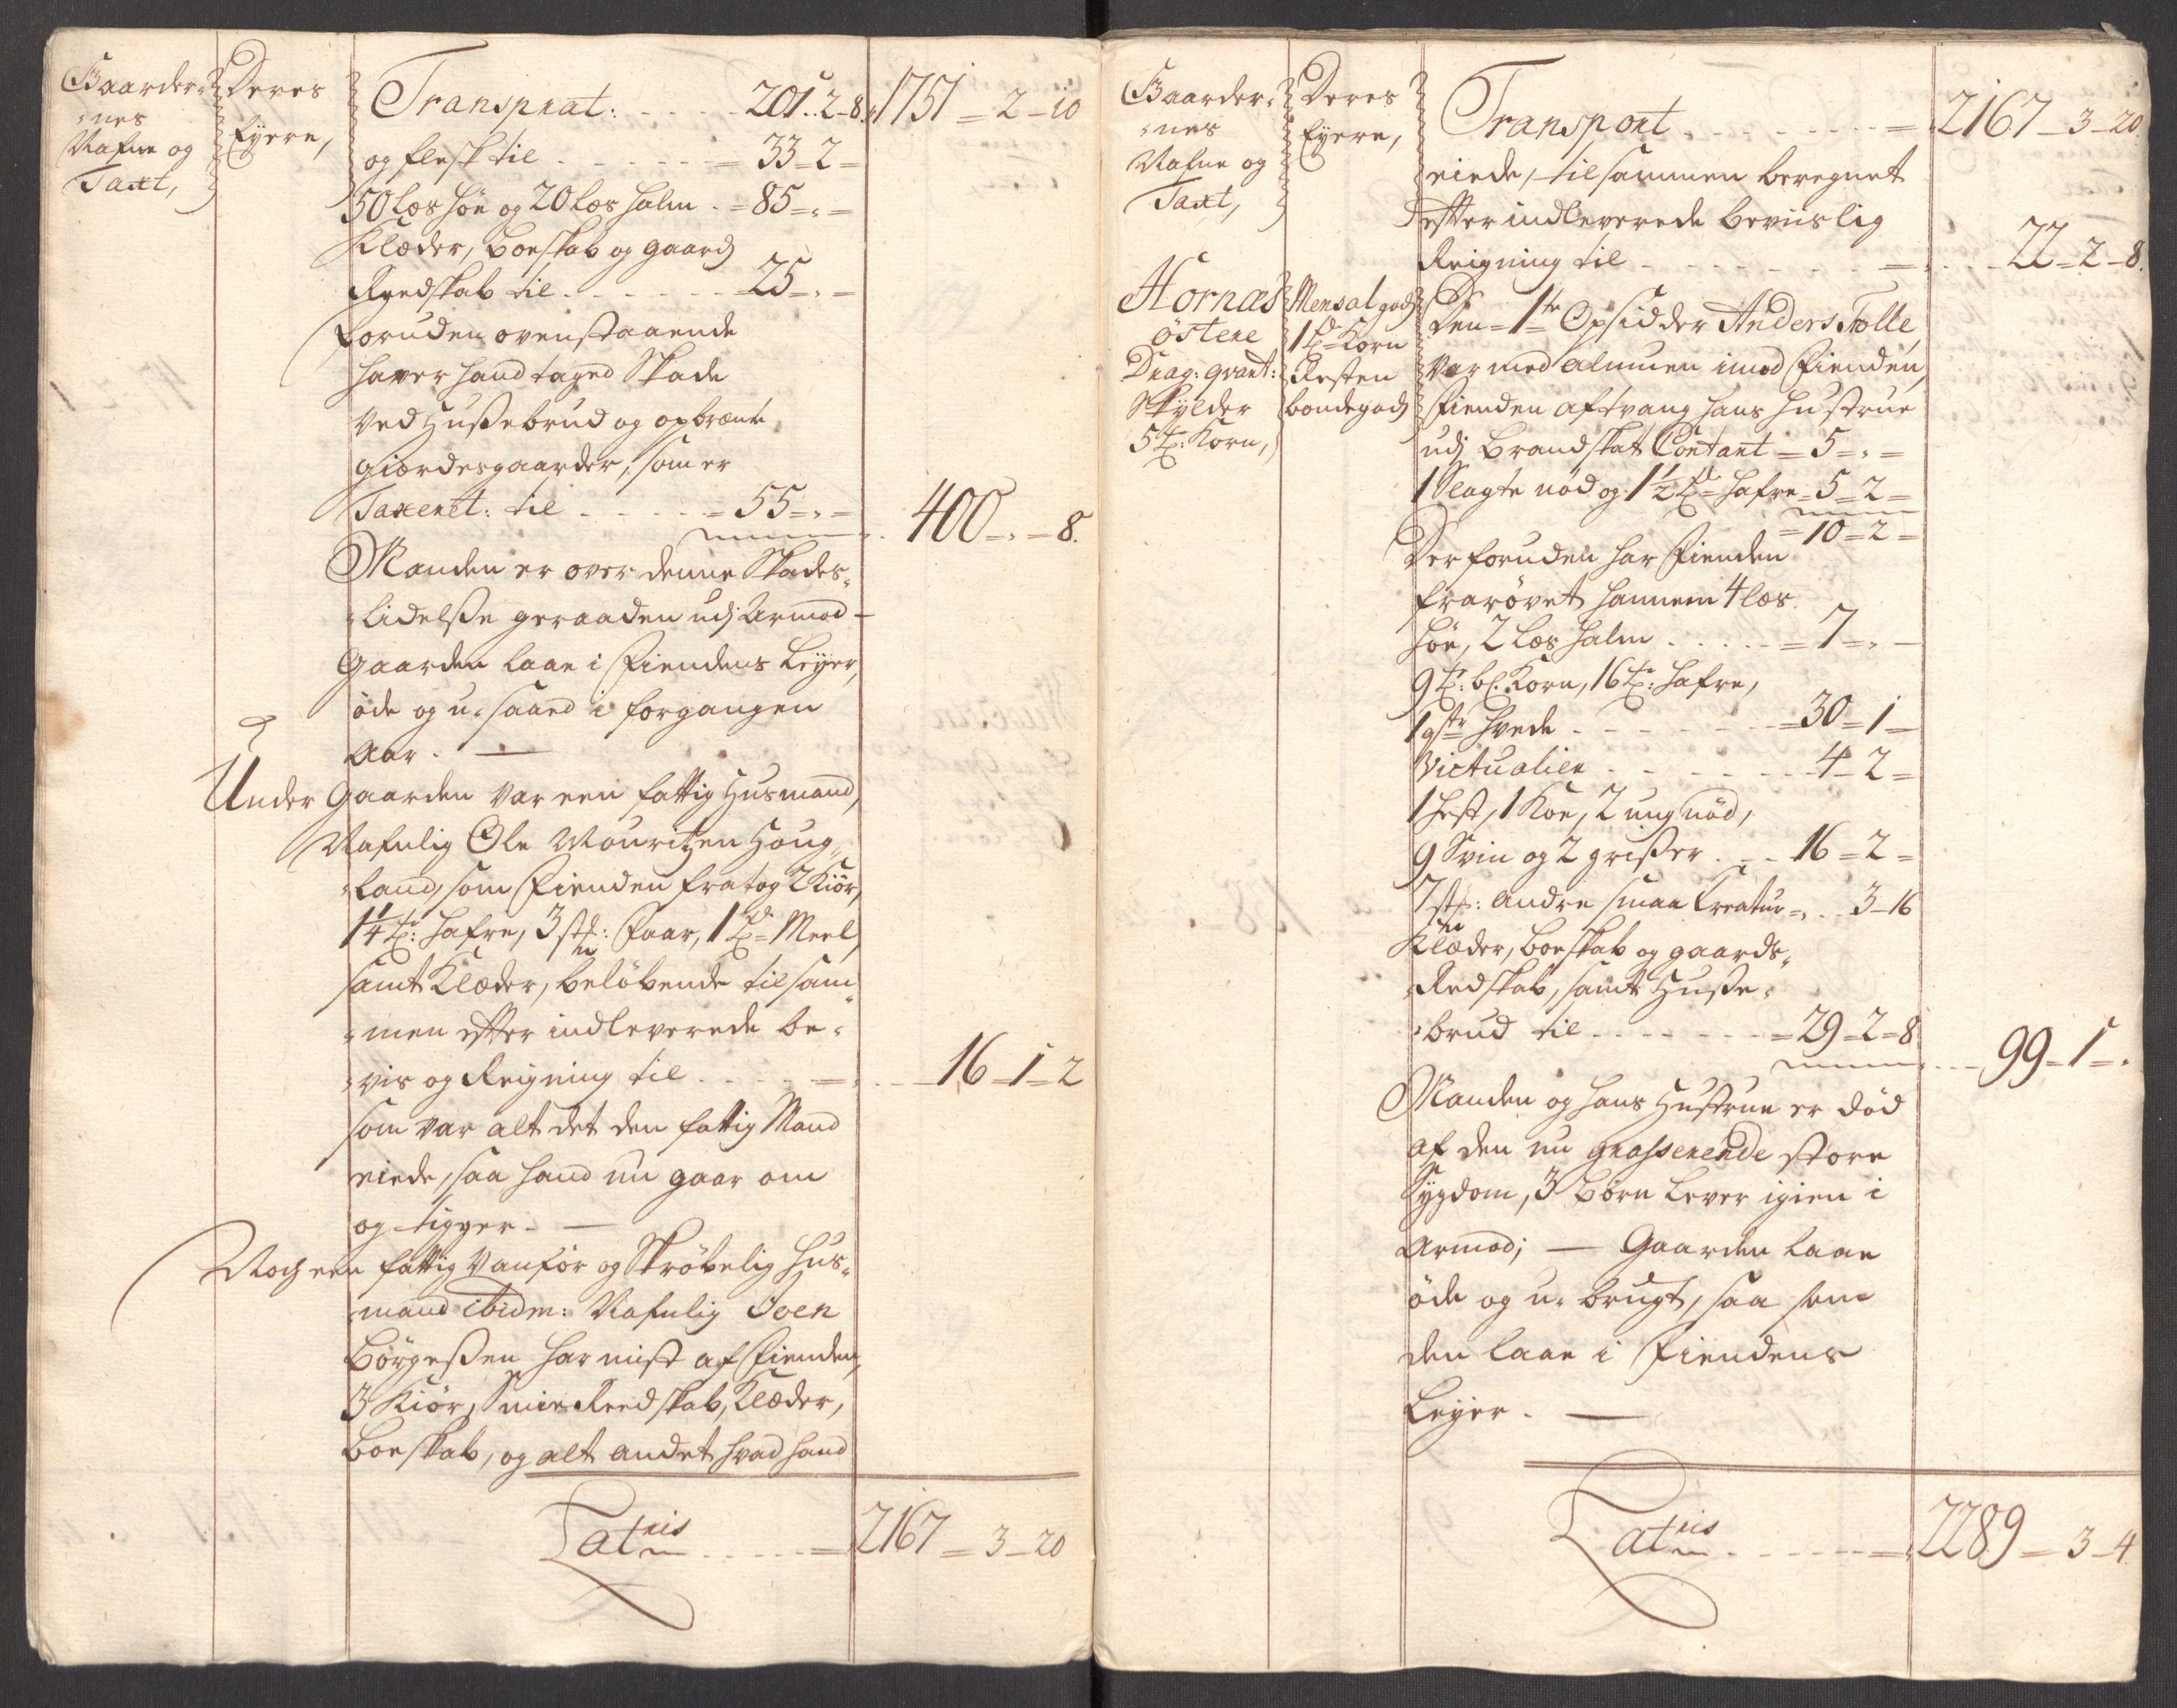 Gaarder-
-nes
Nafne og
Taxt,
Deres
Eyere,
Transprat: - - - - 201..2-8. 1751=2-10
og flesk til - - - - - = 33-2=
50 læs höe og 20 læs halm . =85=,=
Klæder, boeskab og gaards
Reedskab til - - - - - = 25=,=
foruden ovenstaaende
haver hand taged Skade
ved Hussebrud og opbrænte
giærdesgaarder, som er
Taxeret: til - - - - = 55=,= 400=,=8.
Manden er over denne Skades-
-lidelsse geraaden udj Armod -
Gaarden laae i Fiendens Leyer,
öde og u-saaed i forgangen
Aar. —
Under Gaarden var een fattig Husmand,
Nafnlig Ole Mouritzen Houg-
-land, som Fienden fratog 2 Kiör,
1¼ tr: hafre, 3 st: Faar, 1 td= Meel
samt Klæder, belöbende tilsam
-men efter indleverede be-
-vis og Reigning til - - - - = 16=1=2
som var alt det den fattig Mand
eiede, saa hand nu gaar om
og tigger. —
Noch een fattig vanför og Skröbelig Hus-
-mand ibidm: Nafnlig Joen
Börgessen har mist af Fienden,
3 Kiör, Smie Reedskab, Klæder,
boeskab, og alt andet hvad hand
Lateris - - - - = 2167=3-20
Gaarder-
-nes
Nafne og
Taxt,
Deres
Eyere,
Transport - - - - - - = 2167-3-20.
eiede, tilsammen beregnet
efter indleverede beviislig
Reigning til - - - - - - = 22=2-8.
Hornæs
östere
Drag: qvart:
Skylder
5 tr: Korn,
Mensal gods
1 td= Korn
Resten
bondegods
Den = 1te Opsidder Anders Tolle,
var med Almuen imod Fienden,
Fienden aftvang hans Hustrue
udj brandskat Contant = 5=,=
1 Slagte nöd og 1½ td= hafre = 5=2=
=10=2=
Der foruden har Fienden
fraröved hannem 4 læs
höe, 2 læs halm - - - - = 7=,-
9 tr: bl. Korn, 16 tr: hafre,
1 qtr hvede - - - - - - =30=1-
Victualier - - - - - - - 4-2=
1 hest, 1 Koe, 2 ung nöd,
9 Svin og 2 grisser - - - 16=2=
7 st: andre smaa Creatur=,.. 3-16
Klæder, boeskab og gaards-
-Redskab, samt Husse-
-brud til - - - - - - = 29=2=8
99-1=.
Manden og hans Hustrue er död
af den nu grasserende store
Sygdom, 3 Börn lever igien i
Armod; — Gaarden laae
öde og u-brugt, saa som
den laae i Fiendens
Leyer. —
Lateris - - - - - = 2289=3-4.